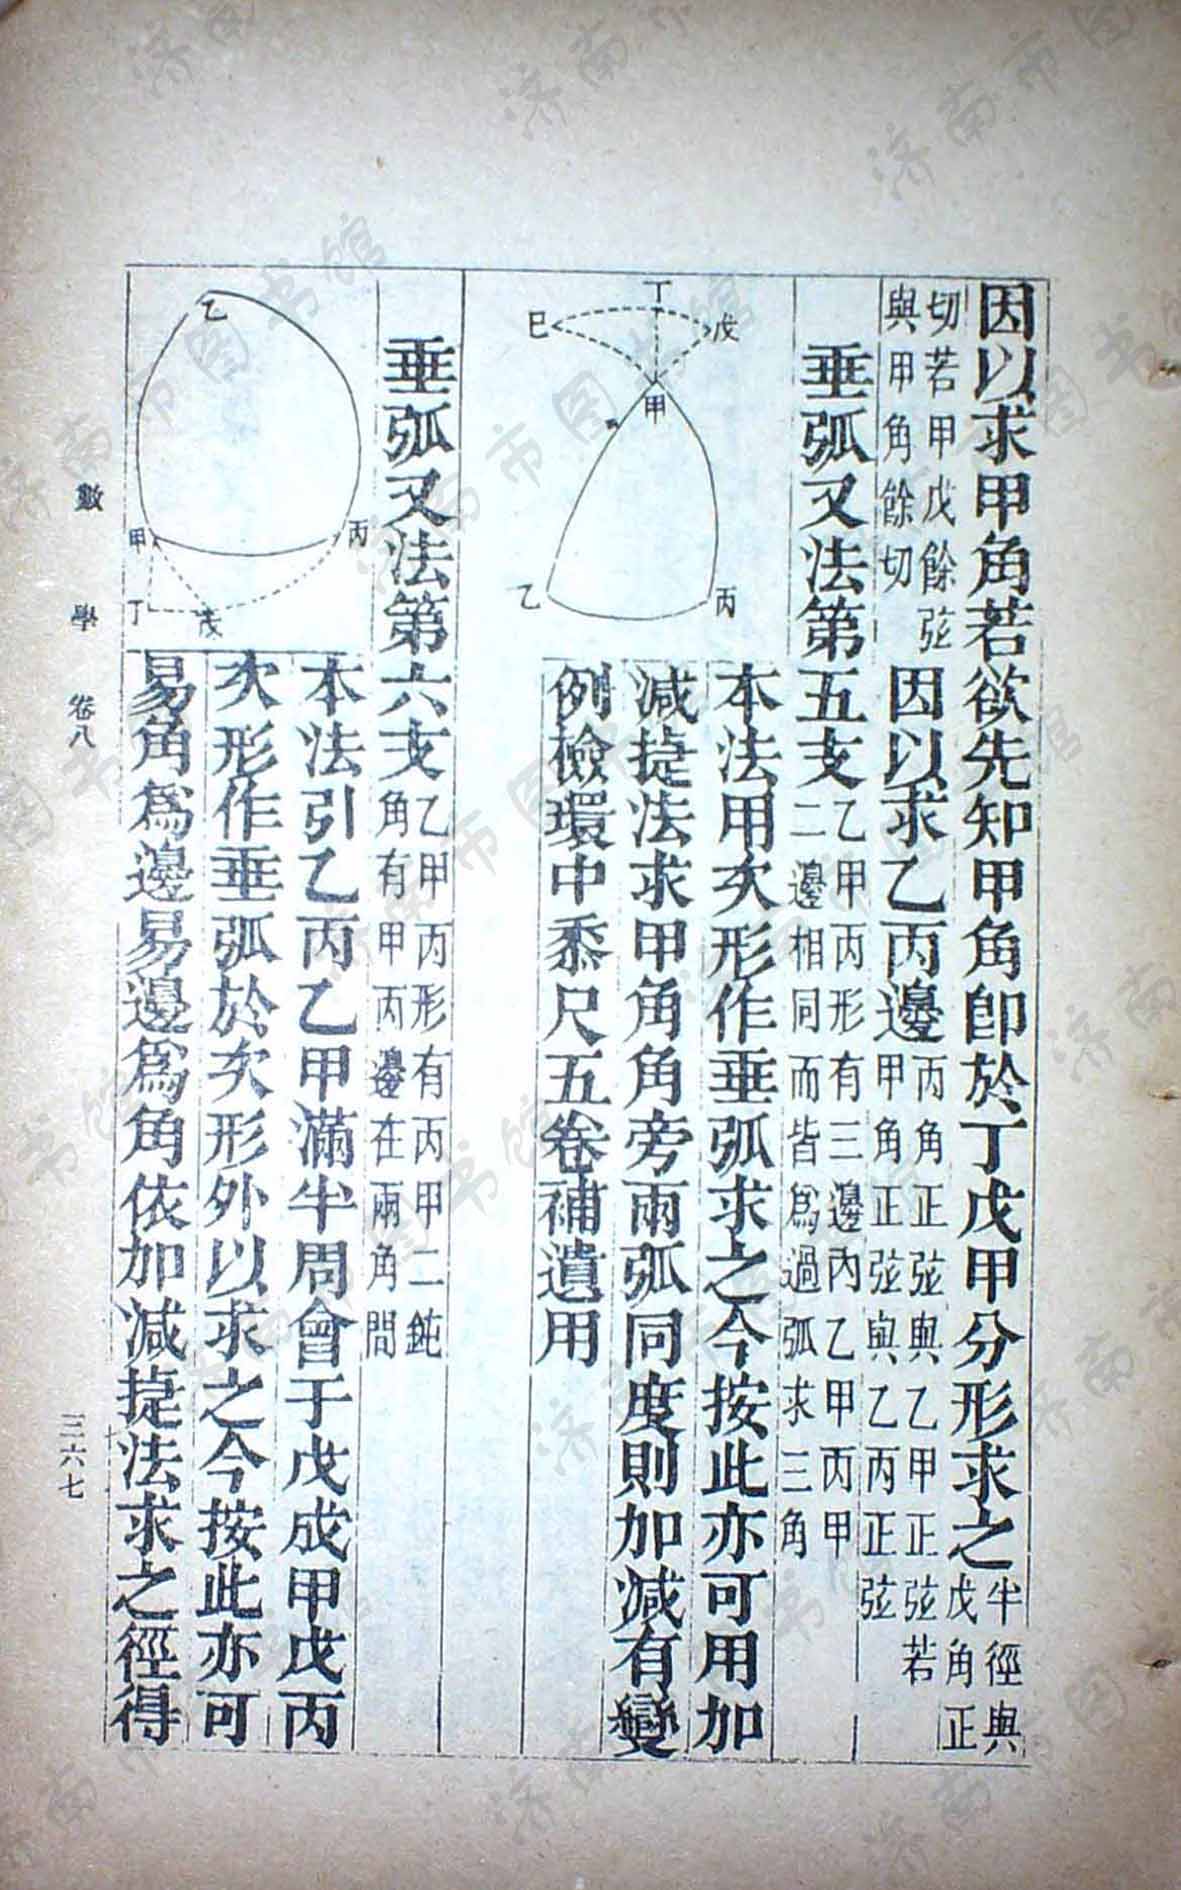 因以求甲角若欲先知甲角卽於丁戊甲分形求之半徑與戊角正
切若甲戊餘弦與甲角餘切因以求乙丙邊丙角正弦與乙甲正弦若甲角正弦與乙丙正弦
垂弧又法第五支乙甲丙形有三邊內乙甲丙甲二邊相同而皆爲過弧求三角
丁
戊
巳
甲
乙
丙
本法用次形作垂弧求之今按此亦可用加
減捷法求甲角角旁兩弧同度則加減有變
例檢環中黍尺五卷補遺用
垂弧又法第六支乙甲丙形有丙甲二鈍角有甲丙邊在兩角間
乙
丙
甲
丁
戊
本法引乙丙乙甲滿半周會于戊成甲戊丙
次形作垂弧於次形外以求之今按此亦可
易角爲邊易邊爲角依加減捷法求之徑得
數學 卷八 三六七
济南市图书馆